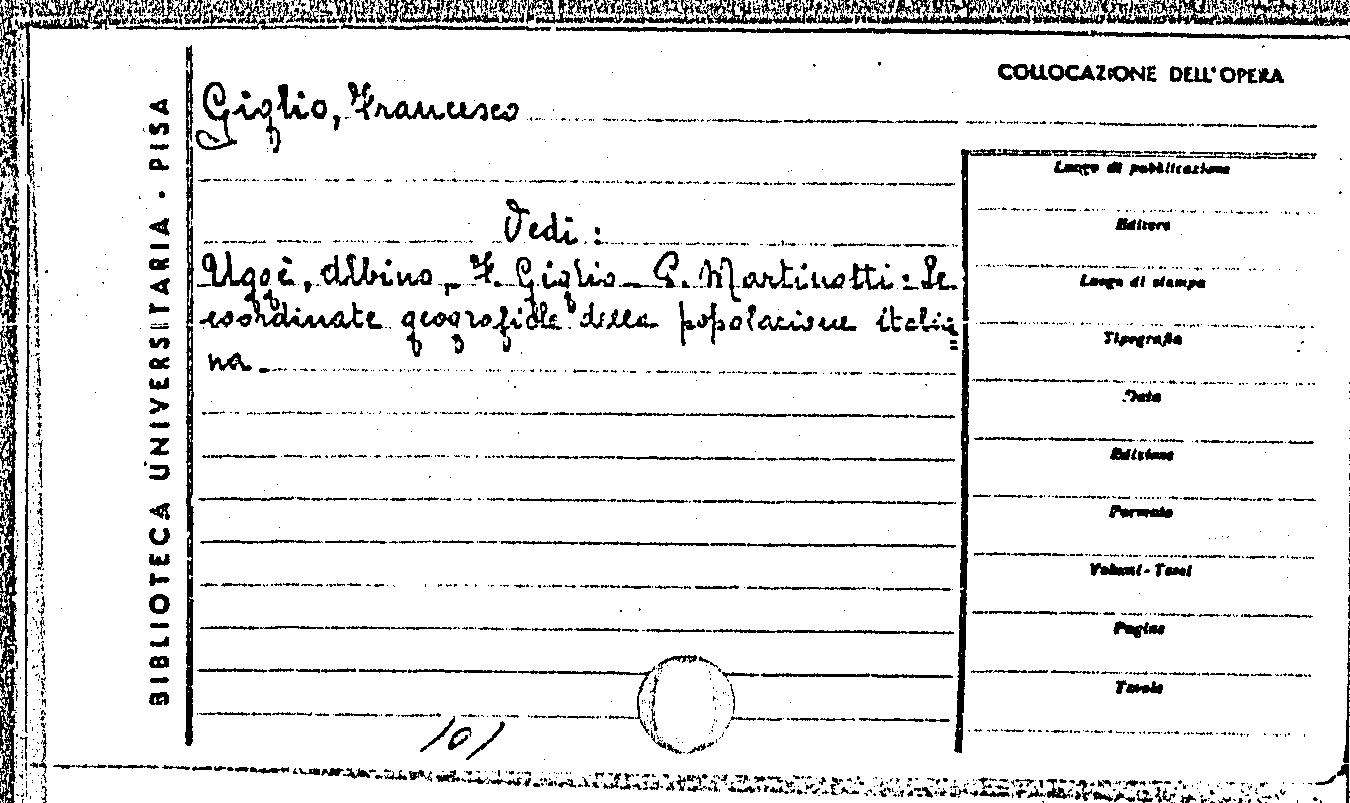 COLLOCAZIONE DELL'OPERA
BIBLIOTECA UNIVERSITARIA - PISA
Giglio, Francesco
Vedi :
Uggè, Albino, F. Giglio - G. Martinotti : Le
coordinate geografiche della popolazione italia=
na.
Luogo di pubblicazione
Editore
Luogo di stampa
Tipografia
Data
Edizione
Formato
Volumi - Tomi
Pagine
Tavole
101